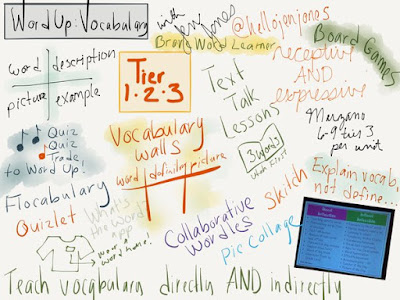 Word Up: Vocabulary
with Jen Jones
@hellojenjones
Brong Word Learner
Board Games
word description
picture example
Tier
1·2·3
Text
Talk
Lessons
receptive
AND
expressive
Marzano
6-9 tier 3
per unit
Quiz
Quiz
Trade
to Word Up!
Vocabulary
walls
word definity picture
3 words
Utah First
Flocabulary
Quizlet
What's
the Word
app
wear a
word home!
Collaborative
Wordles
Skitch
Pic Collage
Explain vocab,
not define...
Teach vocabulary directly AND indirectly